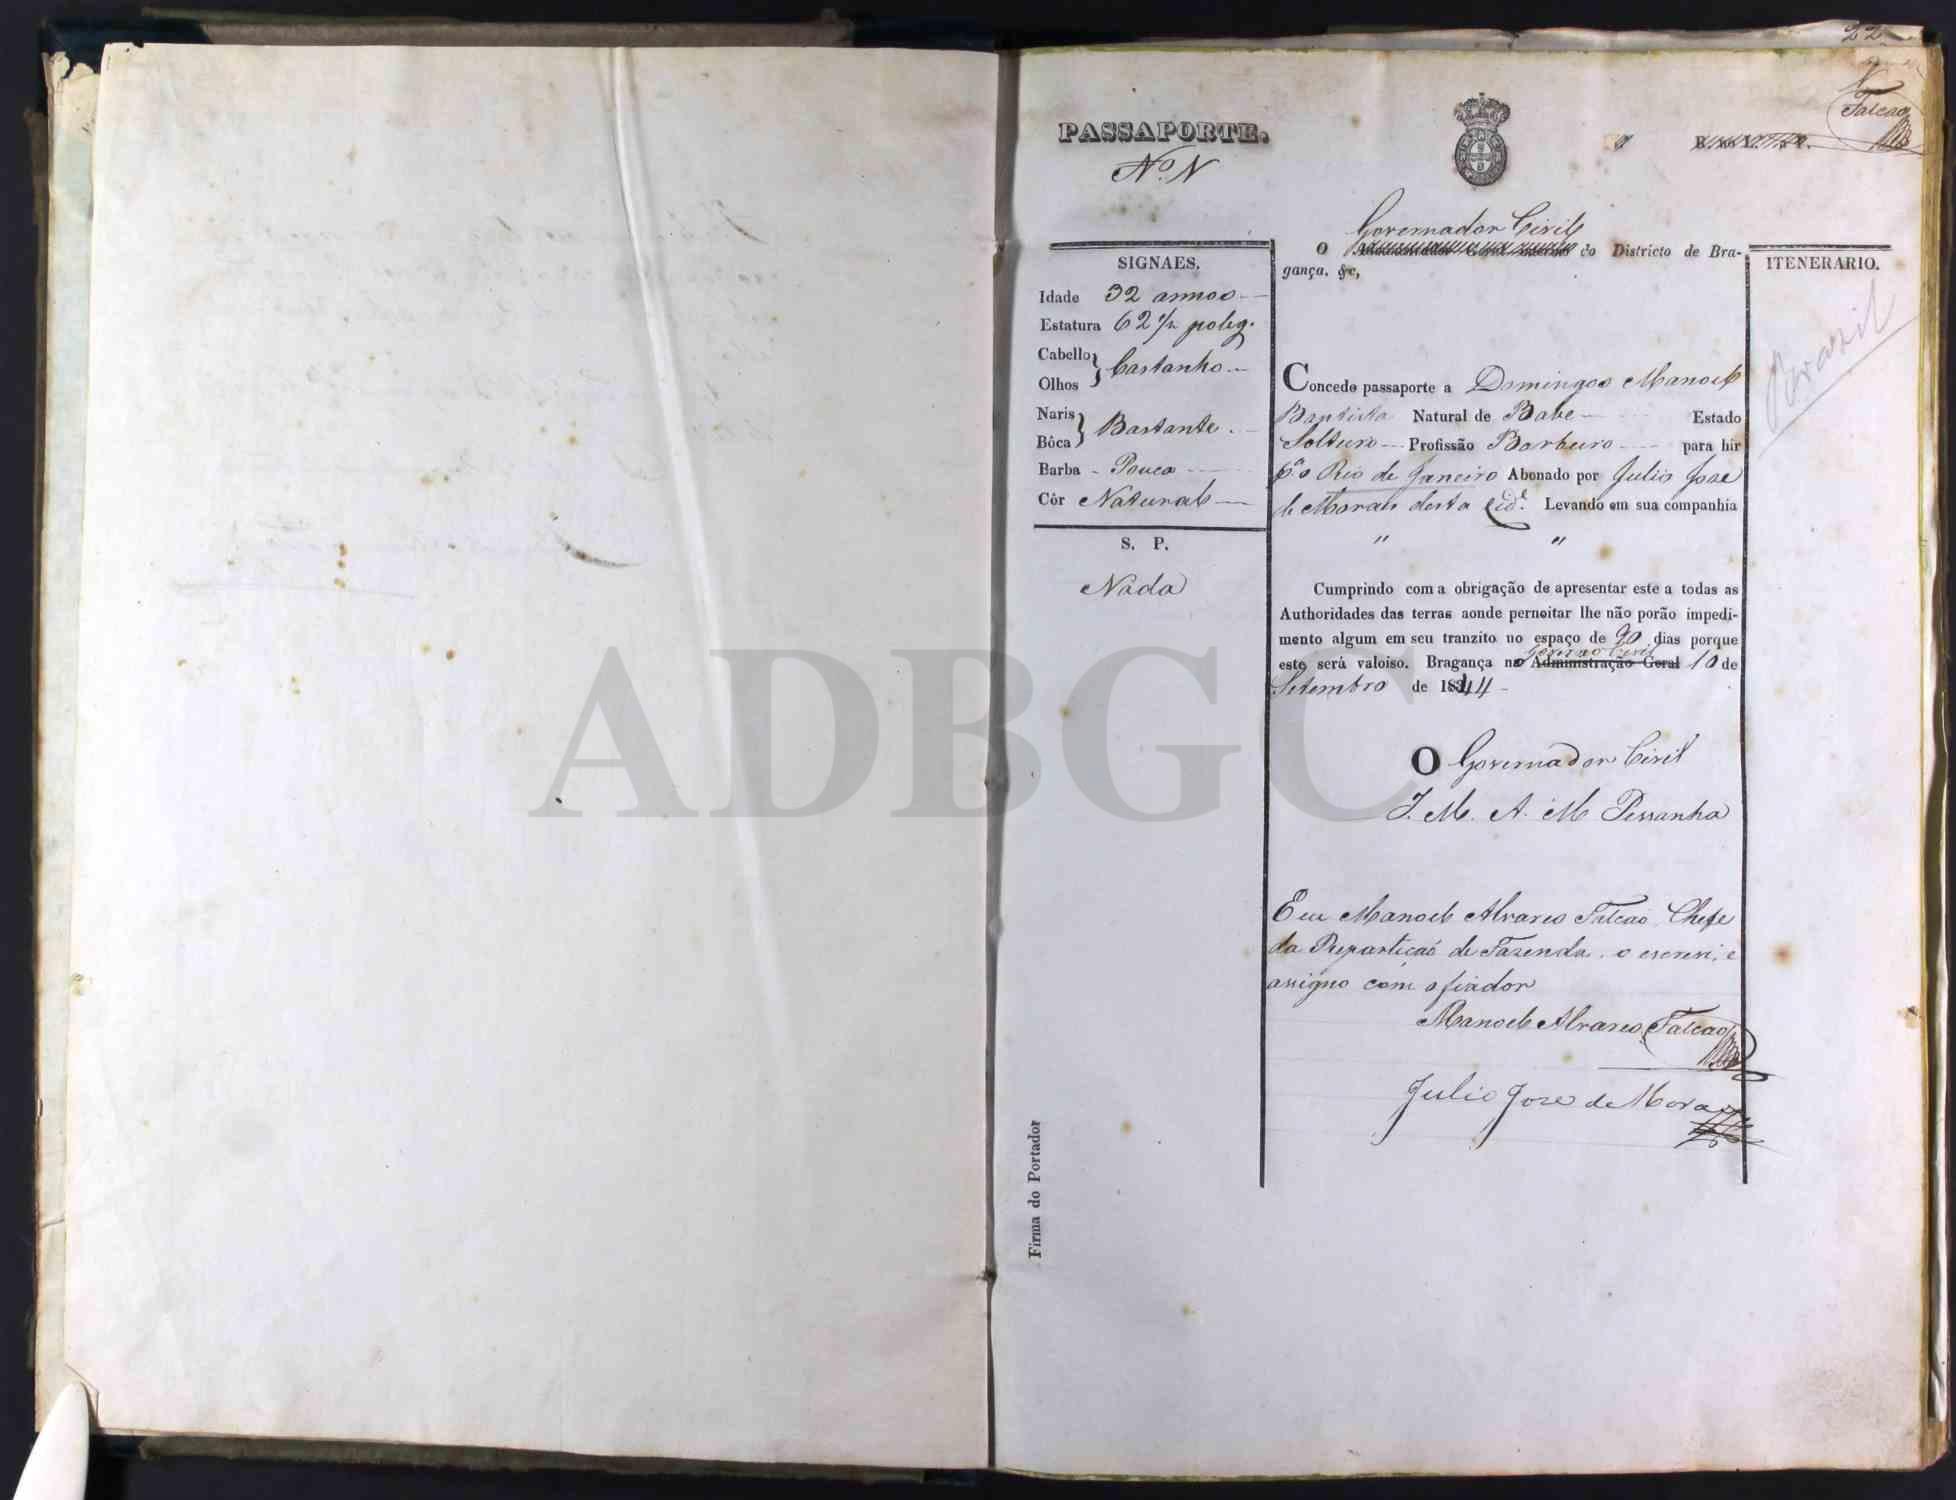 22
Nº
Falcão
PASSAPORTE.
Nº N
Governador Civil
O do Districto de Bra-
gança. &c,
SIGNAES.
Idade 32 annos
Estatura 62 1/2 poleg.
Cabello
Olhos } Castanho
Naris
Bôca } Bastante
Barba Pouca
Côr Natural
S. P.
Nada
Firma do Portador
Concede passaporte a Domingos Manoel
Baptista Natural de Babe Estado
Solteiro Profissão Barbeiro para hir
pª o Rio de Janeiro Abonado por Julio Jose
de Morais desta Cidᵉ. Levando em sua companhia
" "
Cumprindo com a obrigação de apresentar este a todas as
Authoridades das terras aonde pernoitar lhe não porão impedi-
mento algum em seu tranzito no espaço de 90 dias porque
Governo Civil
este será valoiso. Bragança no Administração Geral 10 de
Setembro de 1844
O Governador Civil
J. M. A. M Pessanha
Eu Manoel Alvares Falcaõ Chefe
da Repartiçaõ de Fazenda o escrevi, e
assigno com o fiador
Manoel Alvares Falcão
Julio Jose de Morais
ITENERARIO.
Brazil
ADBGC